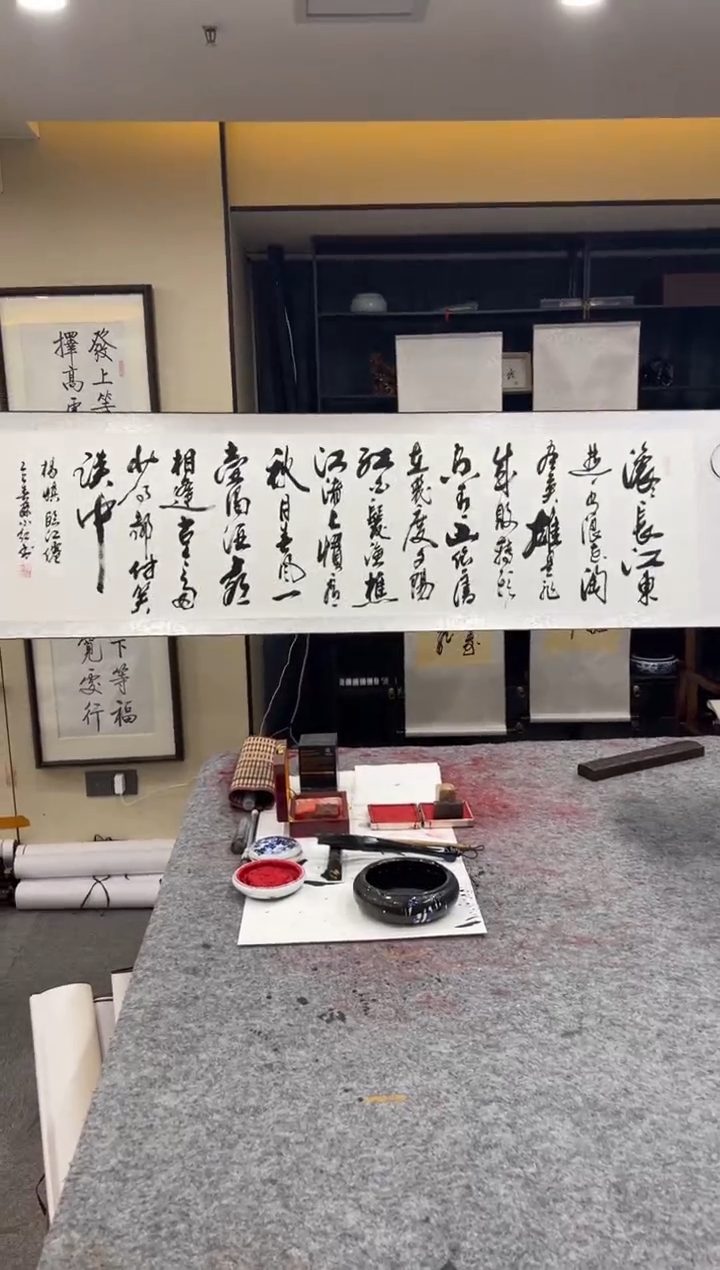 滚滚長江東
逝水浪花淘
盡英雄是非
成敗轉頭
空青山依舊
在幾度夕陽
紅白髮漁樵
江渚上慣看
秋月春風一
壺濁酒喜
相逢古今多
少事都付笑
談中
楊慎臨江僊
發上等
擇高
下等福
寬處行